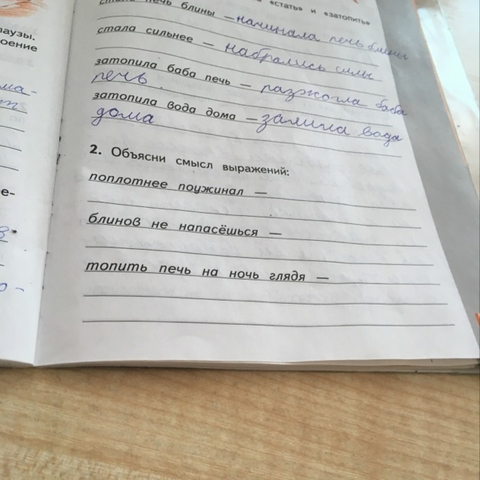 «стать» и «затопить»
печь блины — начинала печь блины
стала сильнее — набрались силы
затопила баба печь — разожгла баба
печь
затопила вода дома — залила вода
дома
2. Объясни смысл выражений:
поплотнее поужинал —
блинов не напасёшься —
топить печь на ночь глядя —